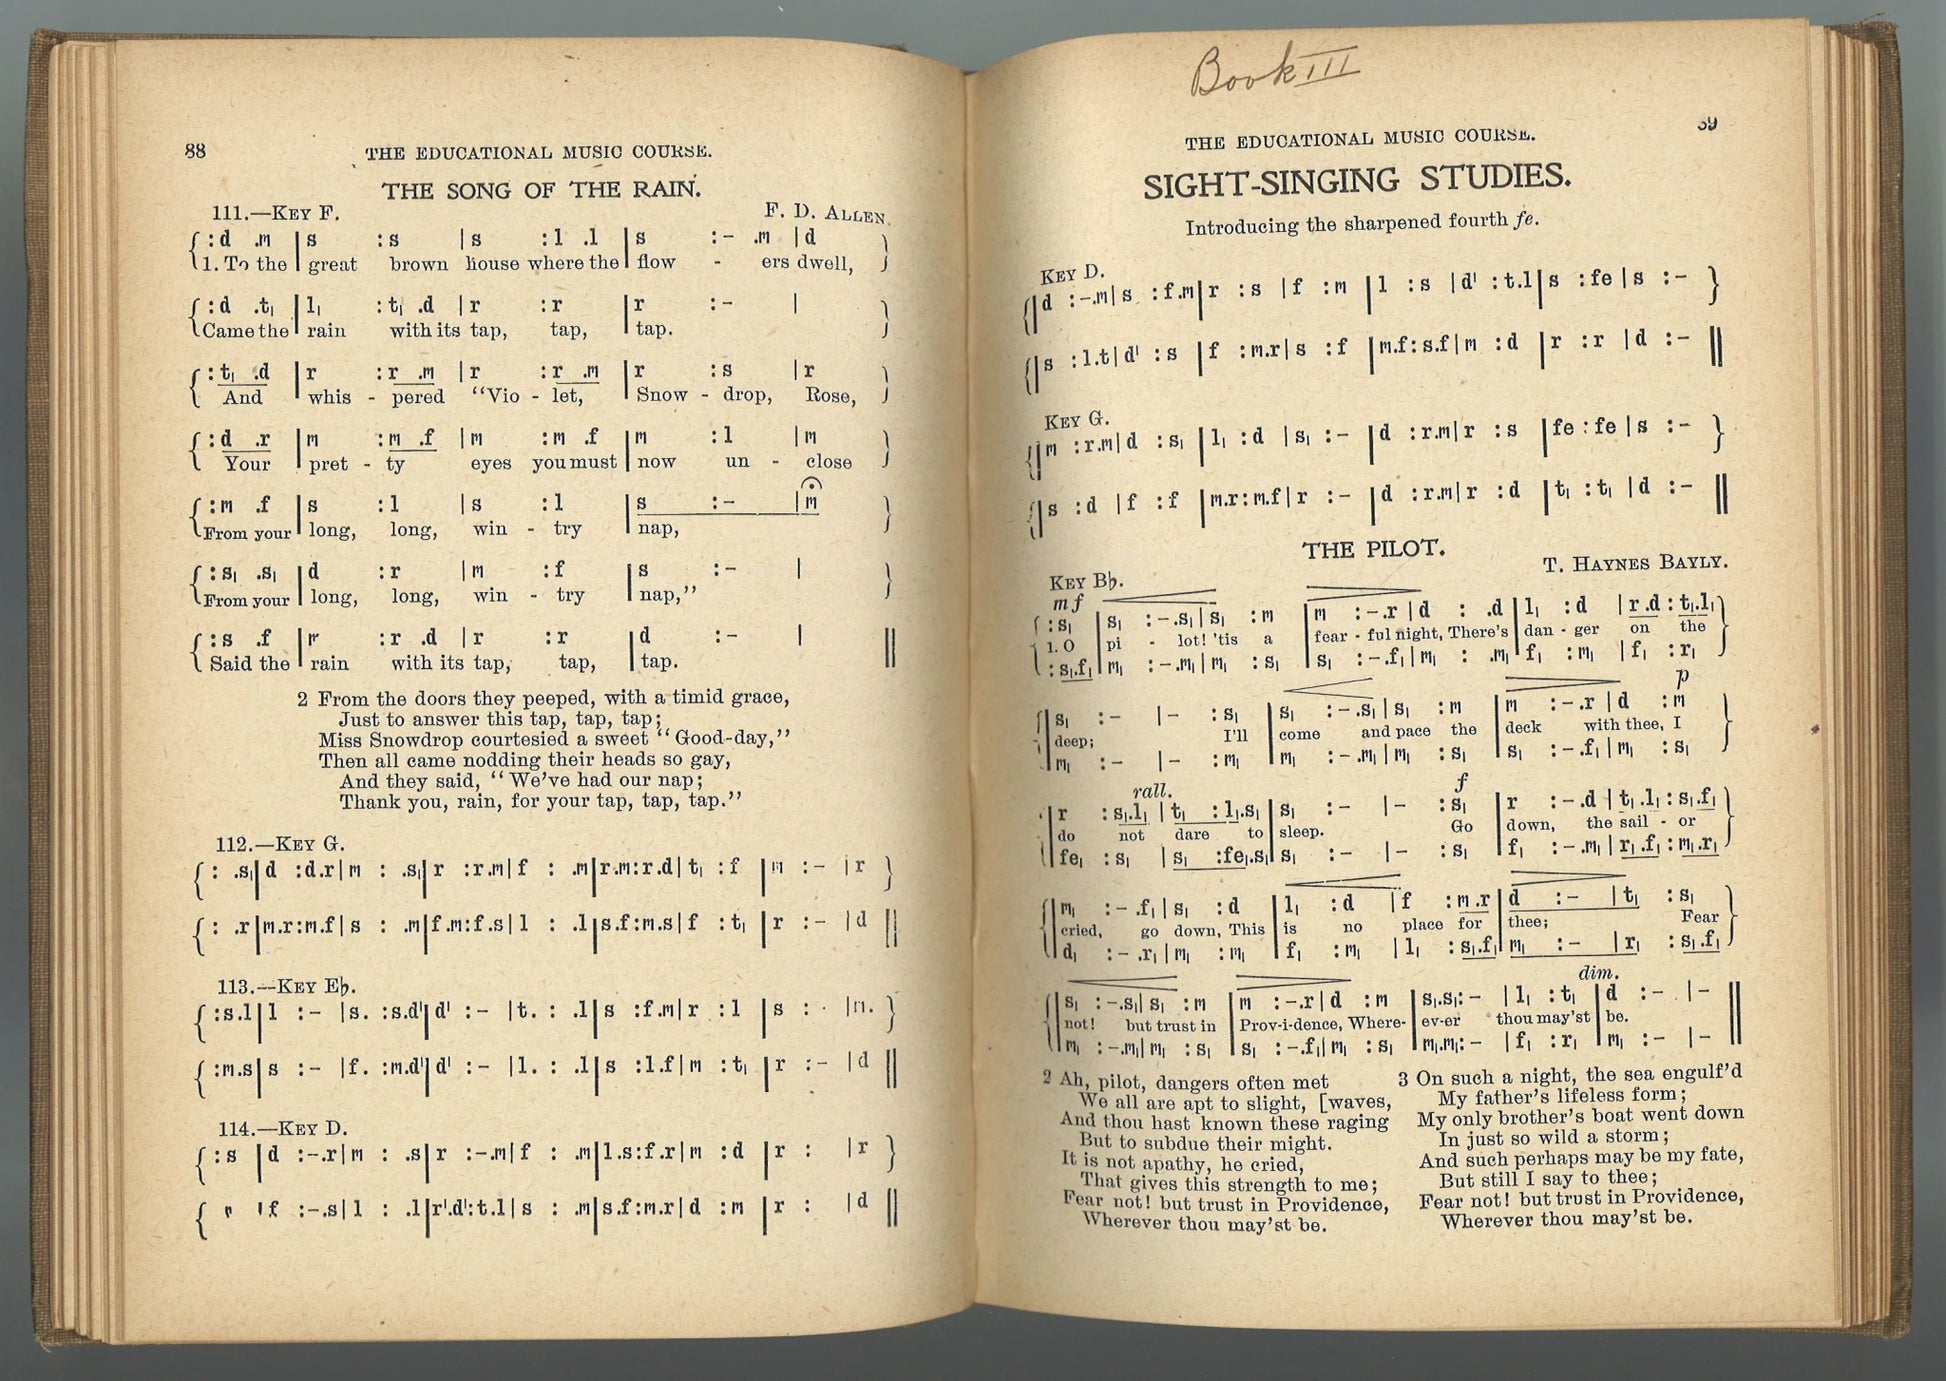 88
THE EDUCATIONAL MUSIC COURSE.
THE SONG OF THE RAIN.
111.—KEY F.
F. D. ALLEN.
{ :d .m | s :s | s :l .l | s :- .m | d }
1. To the great brown house where the flow - ers dwell,
{ :d .t₁ | l₁ :t₁ .d | r :r | r :- | }
Came the rain with its tap, tap, tap.
{ :t₁ .d | r :r .m | r :r .m | r :s | r }
And whis - pered “Vio - let, Snow - drop, Rose,
{ :d .r | m :m .f | m :m .f | m :l | m }
Your pret - ty eyes you must now un - close
{ :m .f | s :l | s :l | s :- | m }
From your long, long, win - try nap,
{ :s₁ .s₁ | d :r | m :f | s :- | }
From your long, long, win - try nap,”
{ :s .f | r :r .d | r :r | d :- | ‖
Said the rain with its tap, tap, tap.
2 From the doors they peeped, with a timid grace,
Just to answer this tap, tap, tap;
Miss Snowdrop courtesied a sweet “Good-day,”
Then all came nodding their heads so gay,
And they said, “We’ve had our nap;
Thank you, rain, for your tap, tap, tap.”
112.—KEY G.
{ : .s₁ | d :d.r | m : .s₁ | r :r.m | f : .m | r.m:r.d | t₁ :f | m :- | r }
{ : .r | m.r:m.f | s : .m | f.m:f.s | l : .l | s.f:m.s | f :t₁ | r :- | d ‖
113.—KEY E♭.
{ :s.l | l :- | s. :s.d' | d' :- | t. : .l | s :f.m | r :l | s : | m. }
{ :m.s | s :- | f. :m.d' | d' :- | l. : .l | s :l.f | m :t₁ | r :- | d ‖
114.—KEY D.
{ :s | d :-.r | m : .s | r :-.m | f : .m | l.s:f.r | m :d | r : | r }
{ f :-.s | l : .l | r'.d':t.l | s : .m | s.f:m.r | d :m | r : | d ‖
Book III
THE EDUCATIONAL MUSIC COURSE.
SIGHT-SINGING STUDIES.
Introducing the sharpened fourth fe.
KEY D.
{ | d :-.m | s :f.m | r :s | f :m | l :s | d' :t.l | s :fe | s :- }
{ | s :l.t | d' :s | f :m.r | s :f | m.f:s.f | m :d | r :r | d :- ‖
KEY G.
{ | m :r.m | d :s₁ | l₁ :d | s₁ :- | d :r.m | r :s | fe :fe | s :- }
{ | s :d | f :f | m.r:m.f | r :- | d :r.m | r :d | t₁ :t₁ | d :- ‖
THE PILOT.
T. HAYNES BAYLY.
KEY B♭.
mf
{ :s₁ | s₁ :-.s₁ | s₁ :m | m :-.r | d : .d | l₁ :d | r.d :t₁.l₁ }
1. O pi - lot! ’tis a fear - ful night, There’s dan - ger on the
:s₁.f₁ | m₁ :-.m₁ | m₁ :s₁ | s₁ :-.f₁ | m₁ : .m₁ | f₁ :m₁ | f₁ :r₁
p
{ | s₁ :- | - :s₁ | s₁ :-.s₁ | s₁ :m | m :-.r | d :m }
deep; I’ll come and pace the deck with thee, I
| m₁ :- | - :m₁ | m₁ :-.m₁ | m₁ :s₁ | s₁ :-.f₁ | m₁ :s₁
rall. f
| r :s₁.l₁ | t₁ :l₁.s₁ | s₁ :- | - :s₁ | r :-.d | t₁.l₁ :s₁.f₁ }
do not dare to sleep. Go down, the sail - or
| fe₁ :s₁ | s₁ :fe₁.s₁ | s₁ :- | - :s₁ | f₁ :-.m₁ | r₁.f₁ :m₁.r₁
{ | m₁ :-.f₁ | s₁ :d | l₁ :d | f :m.r | d :- | t₁ :s₁ }
cried, go down, This is no place for thee; Fear
| d₁ :-.r₁ | m₁ :m₁ | f₁ :m₁ | l₁ :s₁.f₁ | m₁ :- | r₁ :s₁.f₁
dim.
{ | s₁ :-.s₁ | s₁ :m | m :-.r | d :m | s₁.s₁:- | l₁ :t₁ | d :- | - ‖
not! but trust in Prov-i-dence, Where- ev-er thou may’st be.
| m₁ :-.m₁ | m₁ :s₁ | s₁ :-.f₁ | m₁ :s₁ | m₁.m₁:- | f₁ :r₁ | m₁ :- | -
2 Ah, pilot, dangers often met
We all are apt to slight, [waves,
And thou hast known these raging
But to subdue their might.
It is not apathy, he cried,
That gives this strength to me;
Fear not! but trust in Providence,
Wherever thou may’st be.
3 On such a night, the sea engulf’d
My father’s lifeless form;
My only brother’s boat went down
In just so wild a storm;
And such perhaps may be my fate,
But still I say to thee;
Fear not! but trust in Providence,
Wherever thou may’st be.